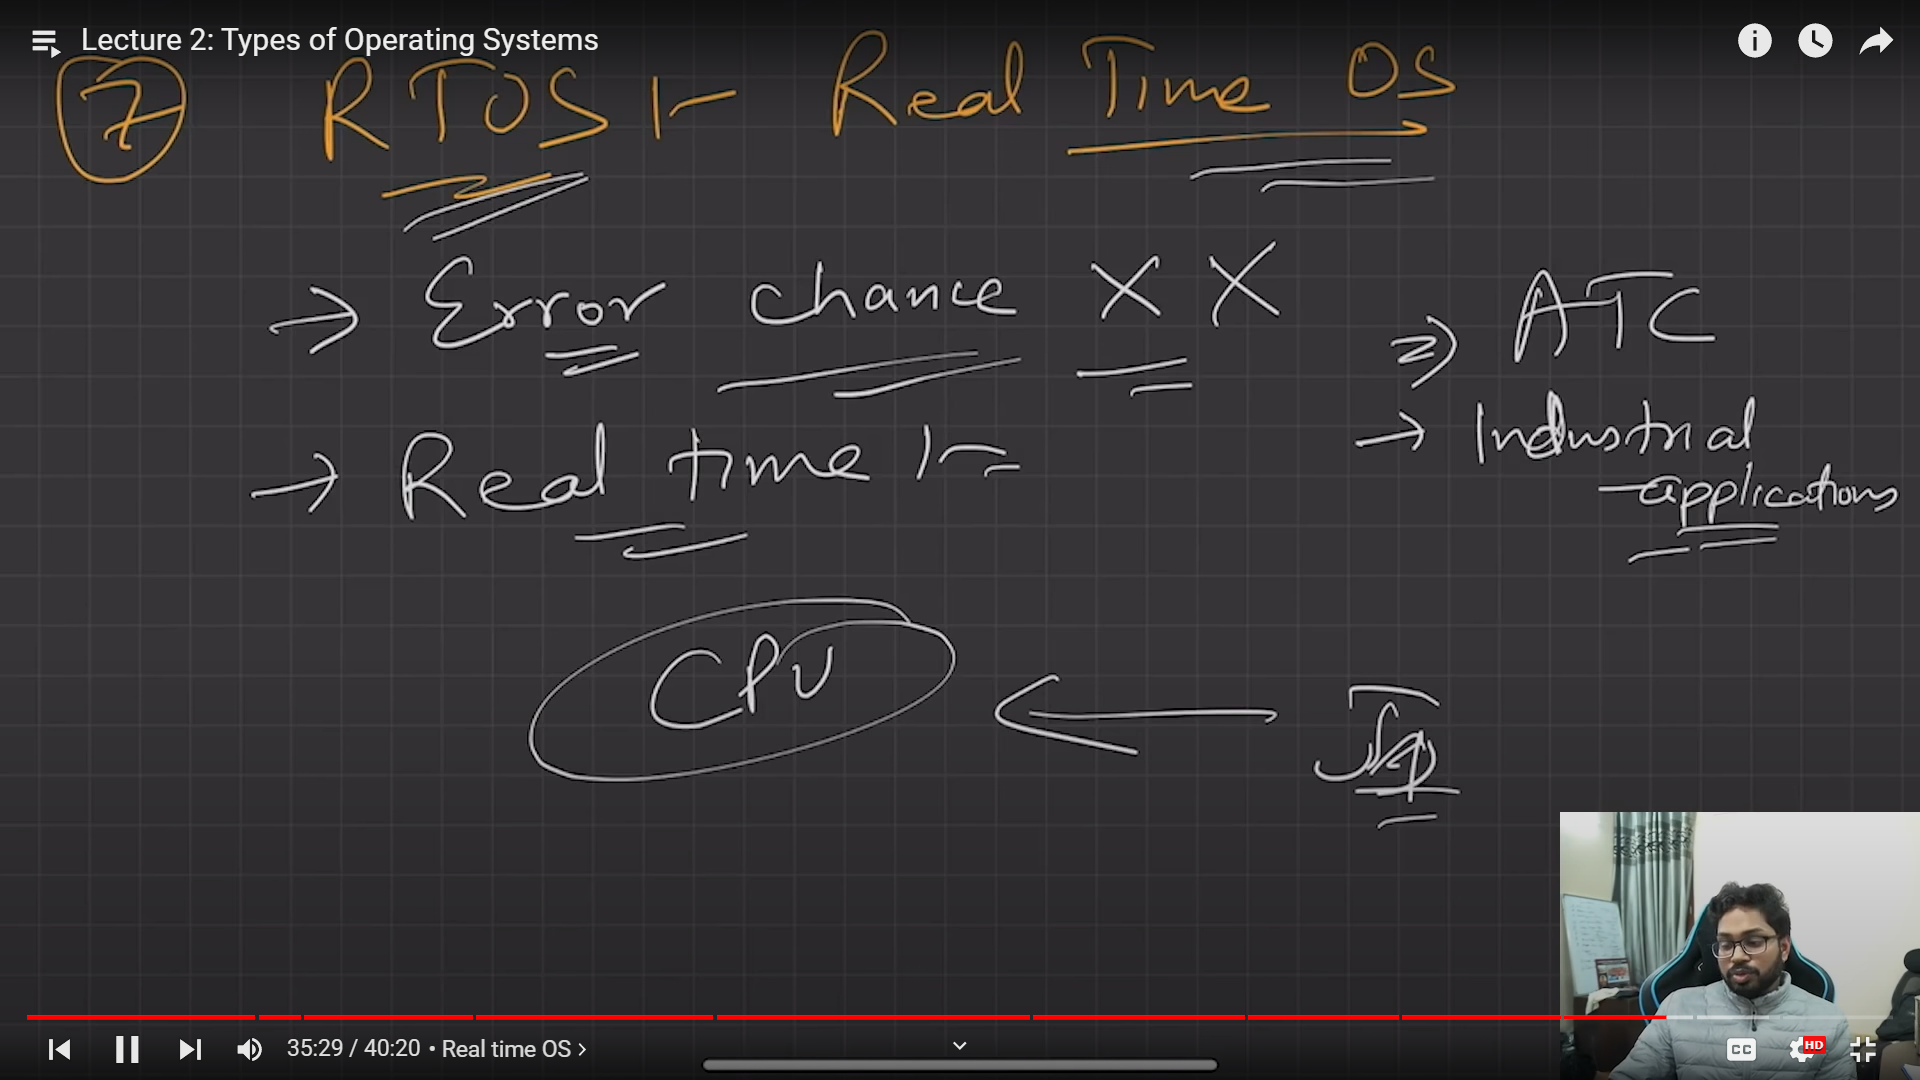 Lecture 2: Types of Operating Systems
7 RTOS :- Real Time OS
→ Error chance X X
⇒ ATC
→ Real time :-
→ Industrial
applications
CPU ←
35:29 / 40:20 • Real time OS ›
CC
HD